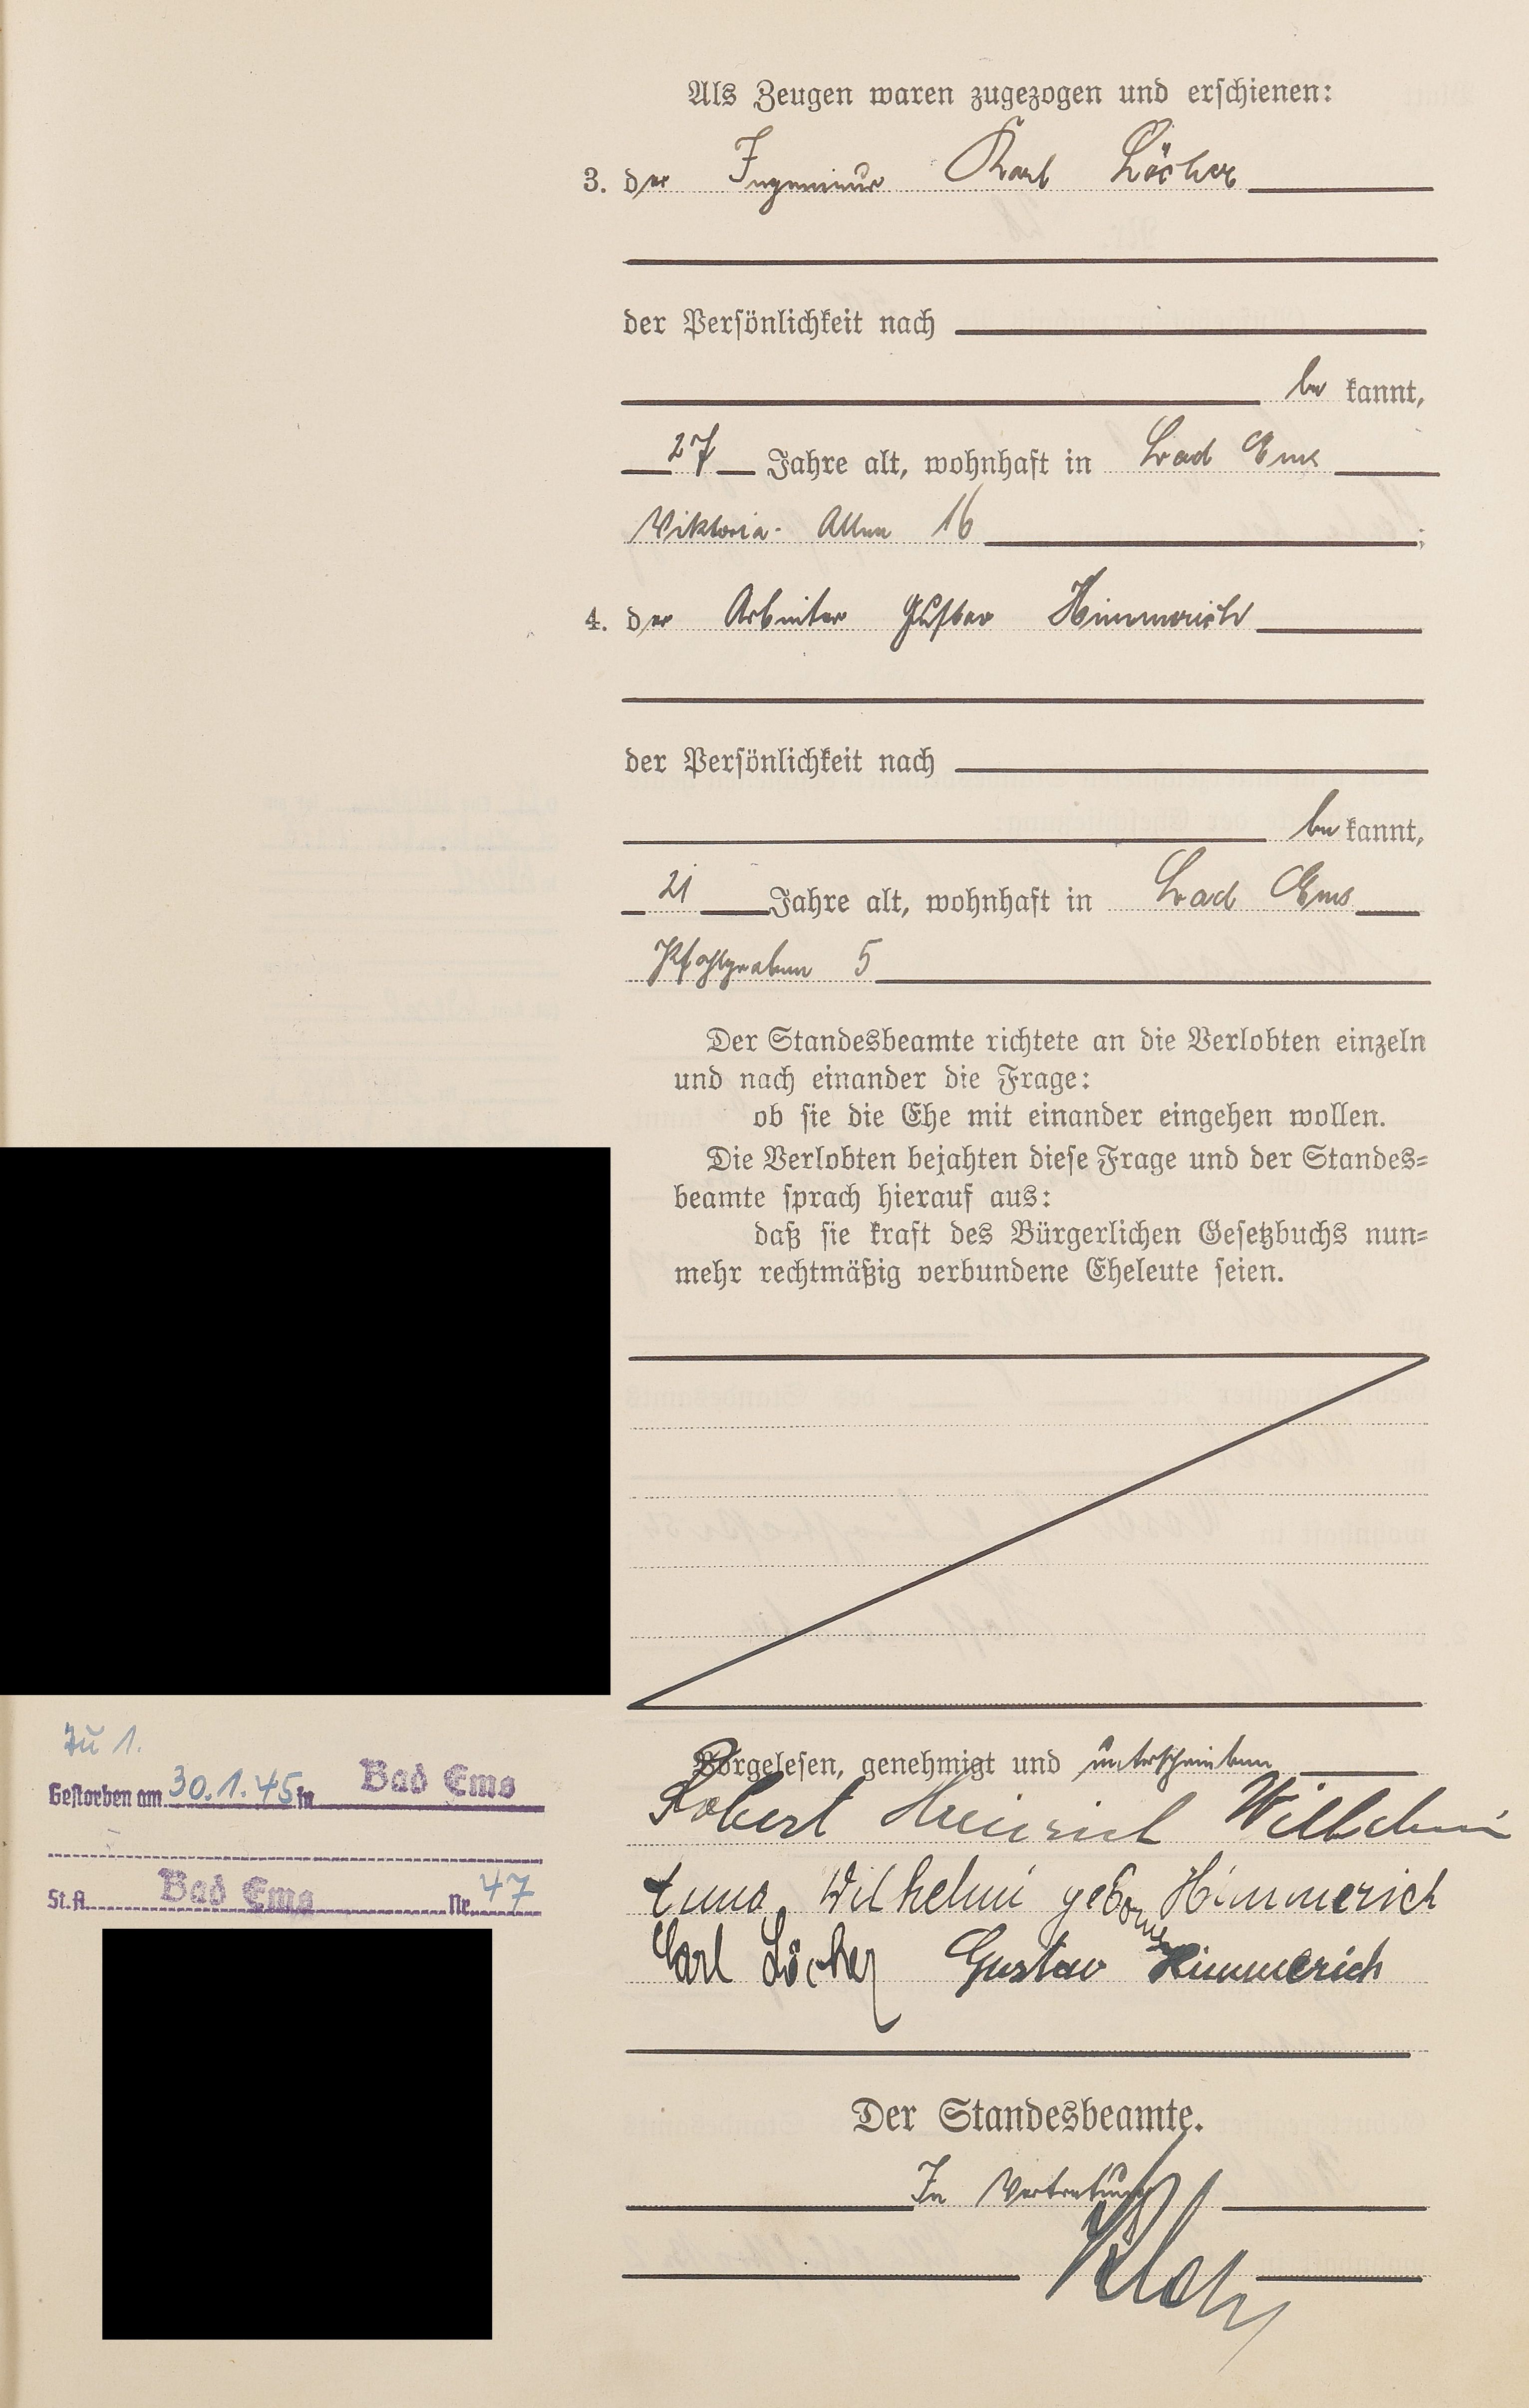 Als Zeugen waren zugezogen und erschienen:
3. der Ingenieur Karl Löcher
der Persönlichkeit nach
be kannt,
27 Jahre alt, wohnhaft in Bad Ems
Viktoria-Allee 16 ;
4. der Arbeiter Gustav Himmerich
der Persönlichkeit nach
be kannt,
21 Jahre alt, wohnhaft in Bad Ems
Pfahlgraben 5
Der Standesbeamte richtete an die Verlobten einzeln
und nach einander die Frage:
ob sie die Ehe mit einander eingehen wollen.
Die Verlobten bejahten diese Frage und der Standes=
beamte sprach hierauf aus:
daß sie kraft des Bürgerlichen Gesetzbuchs nun=
mehr rechtmäßig verbundene Eheleute seien.
Vorgelesen, genehmigt und unterschrieben
Robert Heinrich Wilhelmi
Wilhelmi geborne Himmerich
Carl Löcher Gustav Himmerich
Der Standesbeamte.
In Vertretung
Zu 1.
Gestorben am 30.1.45 in Bad Ems
St.A. Bad Ems Nr. 47